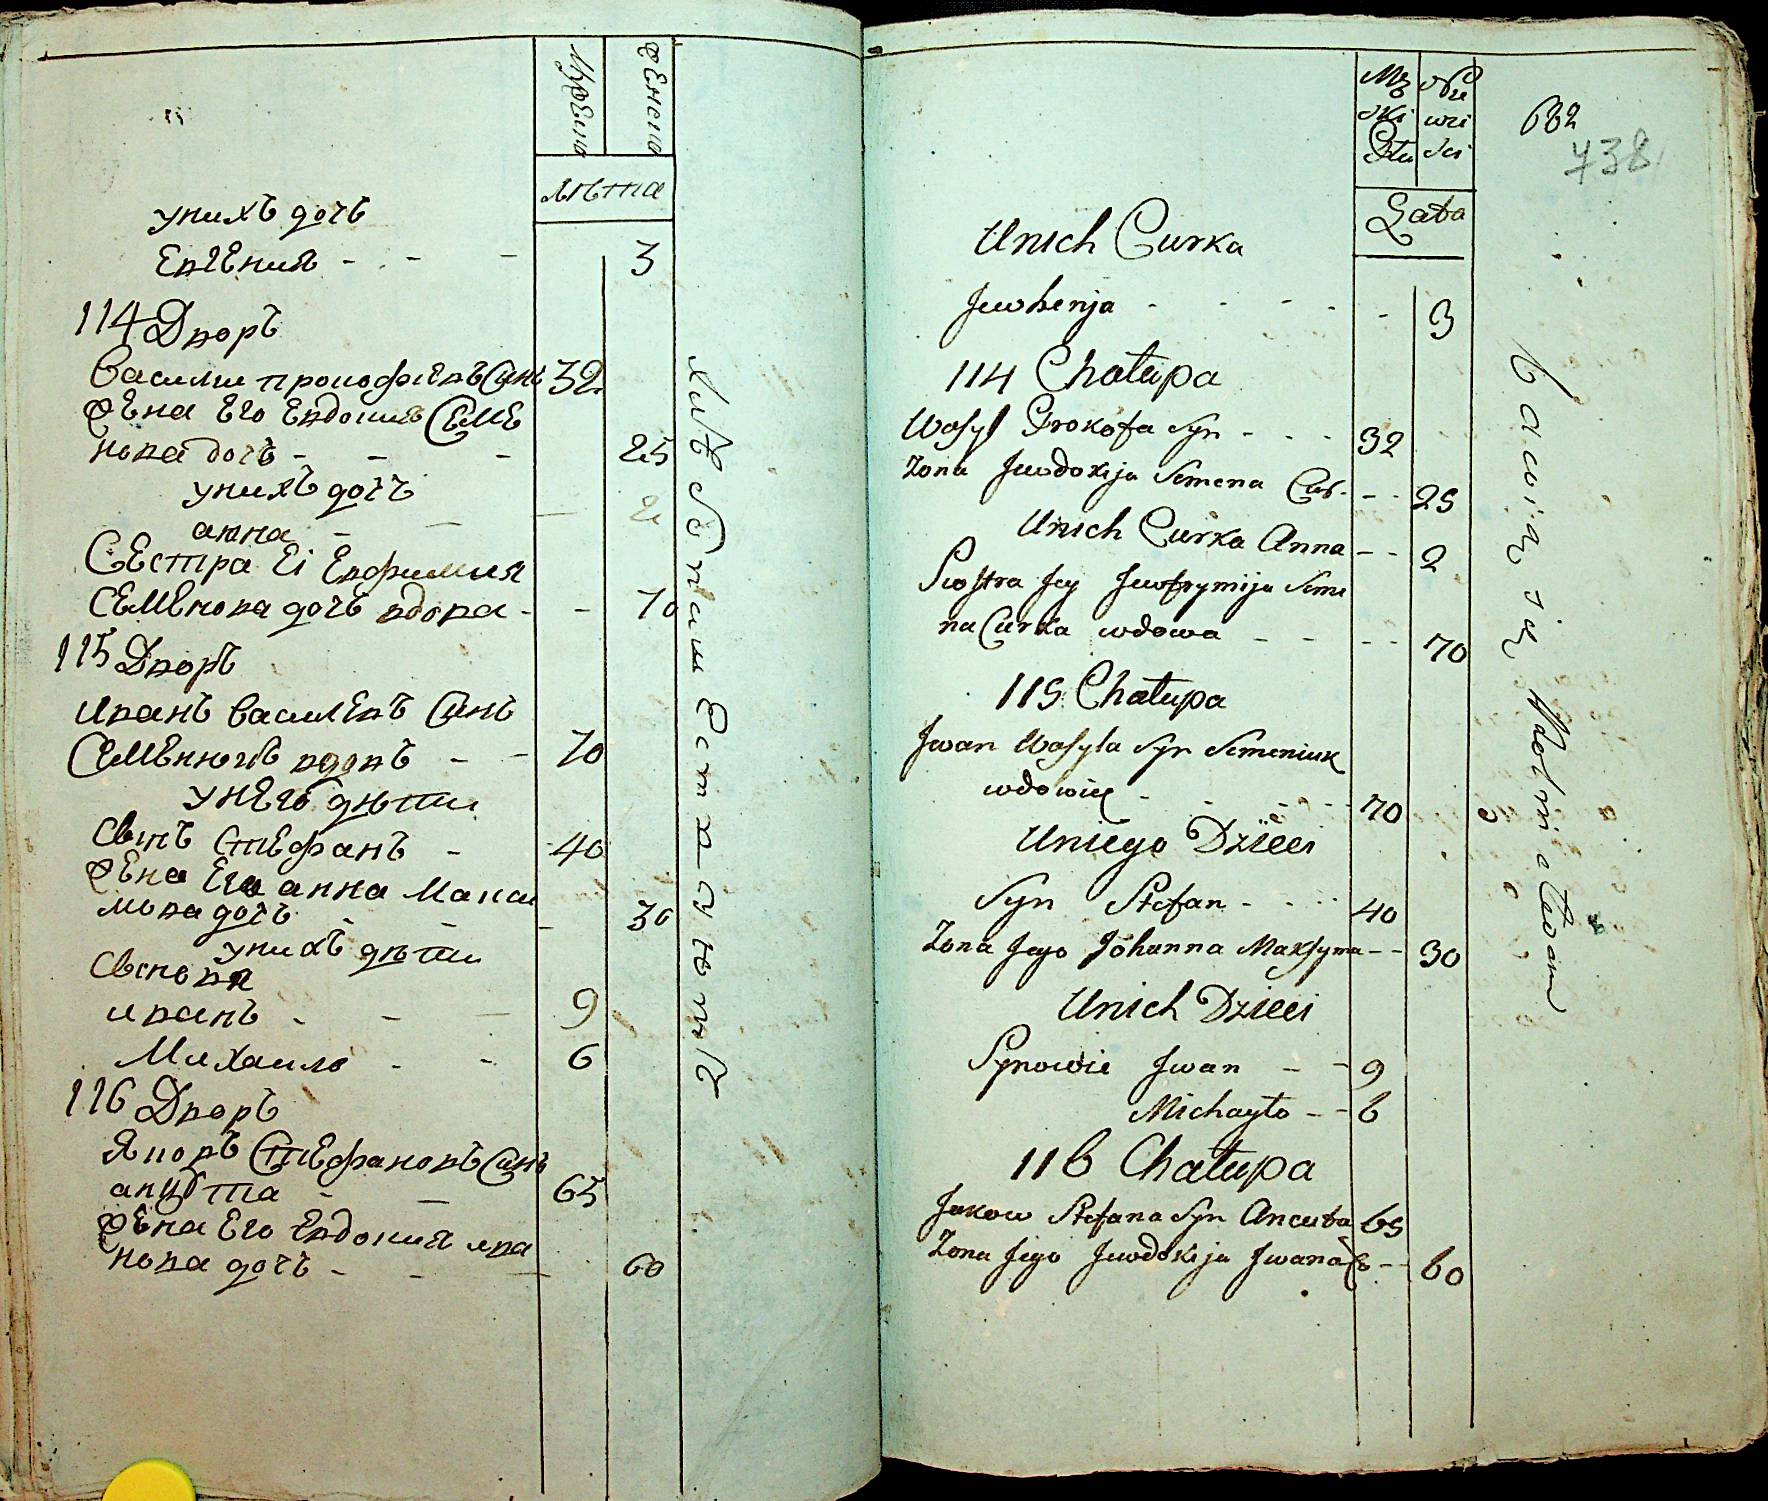 Мужеска
Женска
Лѣта
у нихъ дочь
Евгения - - - 3
114 Дворъ
Василии прокофіевъ Синъ 32
Жена Его Евдокия Семе
нова дочь - - - 25
у нихъ дочь
анна - - - 2
Сестра Еі Евфимия
Семенова дочь вдова - - 70
115 Дворъ
иванъ василевъ Синъ
Семенюкъ вдовъ - - 70
У него дѣти
Синъ Стефанъ - 40
Жена Его анна Макси
мова дочь - - - 30
у нихъ дѣти
Синовя
иванъ - - - 9
Михаило - - 6
116 Дворъ
Яковъ Стефановъ Синъ
анцута - - 65
Жена Его Евдокия ива
нова дочь - - - 60
Męzki Płci
Niewiescki
632
738
Lata
Unich Curka
Jewhenja - - - - - 3
114 Chałupa
Wasyl Prokofa Syn - - - 32
Zona Jewdokija Semena Cur. - - 25
Unich Curka Anna - - 2
Siostra Jey Jewfrymija Seme
na Curka wdowa - - - - 70
115 Chałupa
Jwan Wasyla Syn Semeniuk
wdowiec - - - - 70
Uniego Dzieci
Syn Stefan - - - - 40
Zona Jego Johanna Maksyma - - 30
Unich Dzieci
Synowie Jwan - - 9
Michayło - - 6
116 Chałupa
Jakow Stefana Syn Ancuta 65
Zona Jego Jewdokija Jwana C - - 60